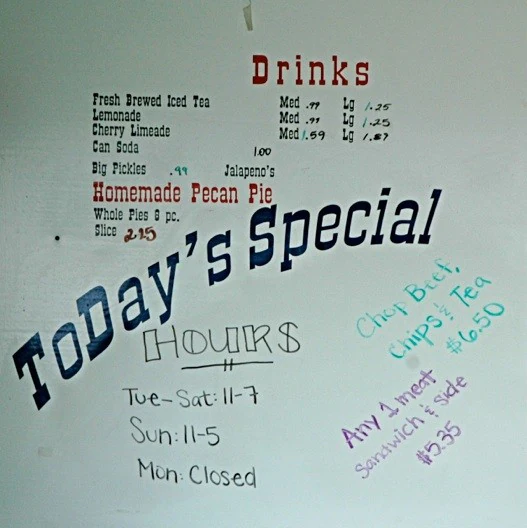 Drinks
Fresh Brewed Iced Tea Med .99 Lg 1.25
Lemonade Med .99 Lg 1.25
Cherry Limeade Med 1.59 Lg 1.87
Can Soda 1.00
Big Pickles .99 Jalapeno's
Homemade Pecan Pie
Whole Pies 8 pc.
Slice 2.25
ToDay's Special
Chop Beef,
Chips & Tea
$6.50
HOURS
Tue-Sat: 11-7
Sun: 11-5
Mon: Closed
Any 1 meat
Sandwich & side
$5.35